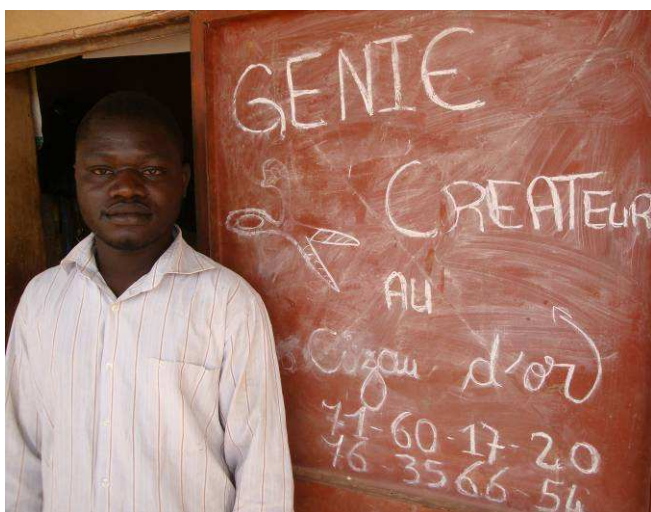 GENIE
CREATEUR
AU
Cizau d'or
71-60-17-20
76-3566-54